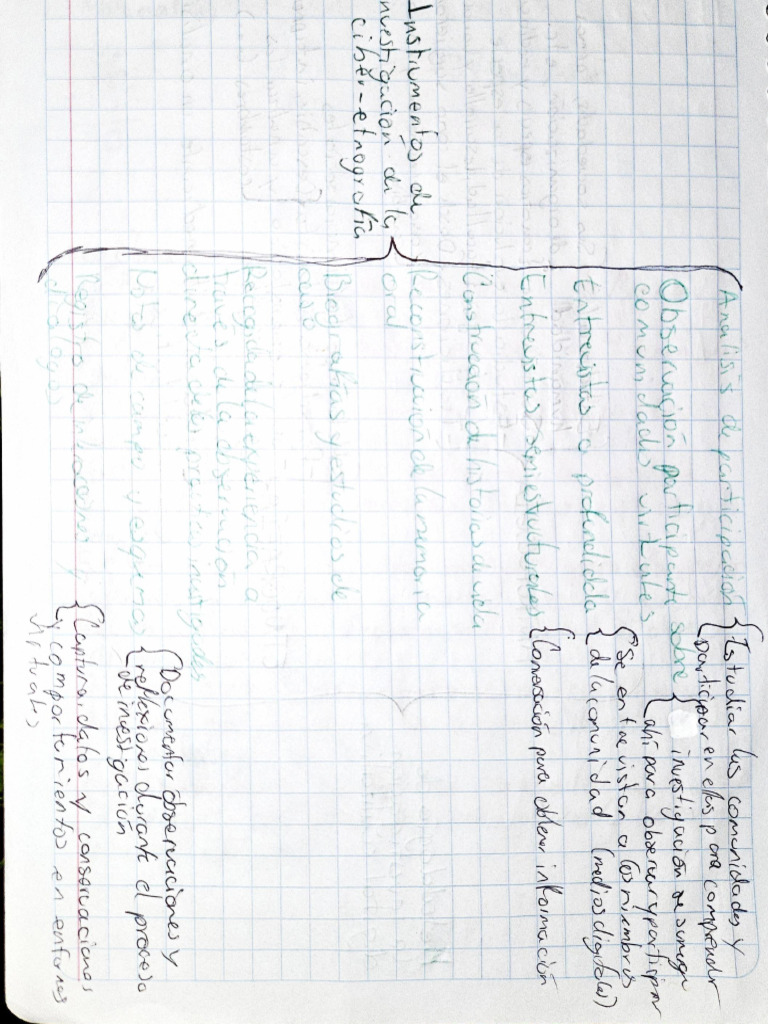 Instrumentos de
investigación de la
ciber-etnografía
Analisis de participación
Estudiar las comunidades y
participar en ellas para comprender
Observación participante sobre
comunidades virtuales
investigación se sumerge
ahí para observar y participar
Entrevistas a profundidad
Se entrevistan a los miembros
de la comunidad (medios digitales)
Entrevistas semiestructuradas
Conversación para obtener información
Construcción de historias de vida
Reconstrucción de la memoria
oral
Biografías y estudios de
caso
Recogida de la experiencia a
través de la observación
directa del
Notas de campo y esquemas
Documentar observaciones y
reflexiones durante el proceso
de investigación
Registro de interacciones y
diálogos
Captura datos y conversaciones
y comportamientos en entornos
virtuales